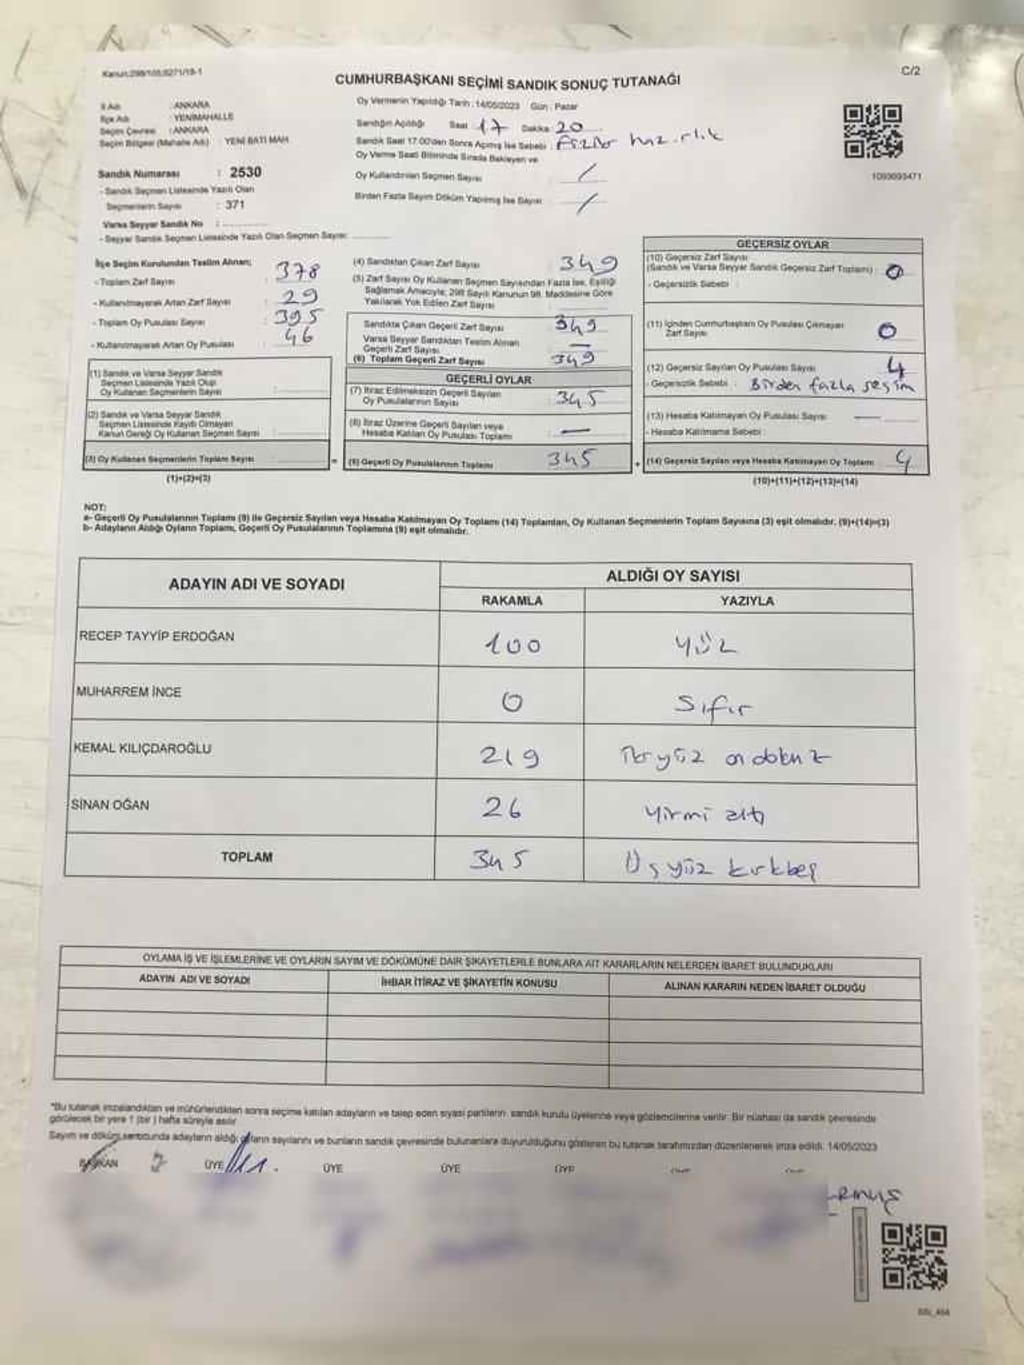 Kanun:298/105,6271/19-1
CUMHURBAŞKANI SEÇİMİ SANDIK SONUÇ TUTANAĞI
C/2
İl Adı : ANKARA
İlçe Adı : YENİMAHALLE
Seçim Çevresi : ANKARA
Seçim Bölgesi (Mahalle Adı) : YENİ BATI MAH
Sandık Numarası : 2530
- Sandık Seçmen Listesinde Yazılı Olan
Seçmenlerin Sayısı : 371
Varsa Seyyar Sandık No :
- Seyyar Sandık Seçmen Listesinde Yazılı Olan Seçmen Sayısı:
Oy Vermenin Yapıldığı Tarih : 14/05/2023 Gün : Pazar
Sandığın Açıldığı Saat 17 Dakika 20
Sandık Saat 17.00'den Sonra Açılmış İse Sebebi :
Oy Verme Saati Bitiminde Sırada Bekleyen ve
Oy Kullandırılan Seçmen Sayısı /
Birden Fazla Sayım Döküm Yapılmış İse Sayısı /
1093693471
İlçe Seçim Kurulundan Teslim Alınan;
- Toplam Zarf Sayısı : 378
- Kullanılmayarak Artan Zarf Sayısı : 29
- Toplam Oy Pusulası Sayısı : 395
- Kullanılmayarak Artan Oy Pusulası : 46
(1) Sandık ve Varsa Seyyar Sandık
Seçmen Listesinde Yazılı Olup
Oy Kullanan Seçmenlerin Sayısı :
(2) Sandık ve Varsa Seyyar Sandık
Seçmen Listesinde Kayıtlı Olmayan
Kanun Gereği Oy Kullanan Seçmen Sayısı :
(3) Oy Kullanan Seçmenlerin Toplam Sayısı
(1)+(2)=(3)
(4) Sandıktan Çıkan Zarf Sayısı : 349
(5) Zarf Sayısı Oy Kullanan Seçmen Sayısından Fazla İse, Eşitliği
Sağlamak Amacıyla; 298 Sayılı Kanunun 98. Maddesine Göre
Yakılarak Yok Edilen Zarf Sayısı
Sandıkta Çıkan Geçerli Zarf Sayısı : 349
Varsa Seyyar Sandıktan Teslim Alınan
Geçerli Zarf Sayısı : —
(6) Toplam Geçerli Zarf Sayısı : 349
GEÇERLİ OYLAR
(7) İtiraz Edilmeksizin Geçerli Sayılan
Oy Pusulalarının Sayısı : 345
(8) İtiraz Üzerine Geçerli Sayılan veya
Hesaba Katılan Oy Pusulası Toplamı : —
(9) Geçerli Oy Pusulalarının Toplamı : 345
GEÇERSİZ OYLAR
(10) Geçersiz Zarf Sayısı
(Sandık ve Varsa Seyyar Sandık Geçersiz Zarf Toplamı) : 0
- Geçersizlik Sebebi :
(11) İçinden Cumhurbaşkanı Oy Pusulası Çıkmayan
Zarf Sayısı : 0
(12) Geçersiz Sayılan Oy Pusulası Sayısı : 4
- Geçersizlik Sebebi : Birden fazla seçim
(13) Hesaba Katılmayan Oy Pusulası Sayısı : —
- Hesaba Katılmama Sebebi :
(14) Geçersiz Sayılan veya Hesaba Katılmayan Oy Toplamı : 4
(10)+(11)+(12)+(13)=(14)
NOT:
a- Geçerli Oy Pusulalarının Toplamı (9) ile Geçersiz Sayılan veya Hesaba Katılmayan Oy Toplamı (14) Toplamları, Oy Kullanan Seçmenlerin Toplam Sayısına (3) eşit olmalıdır. (9)+(14)=(3)
b- Adayların Aldığı Oyların Toplamı, Geçerli Oy Pusulalarının Toplamına (9) eşit olmalıdır.
ADAYIN ADI VE SOYADI
ALDIĞI OY SAYISI
RAKAMLA YAZIYLA
RECEP TAYYİP ERDOĞAN 100 yüz
MUHARREM İNCE 0 sıfır
KEMAL KILIÇDAROĞLU 219 ikiyüz ondokuz
SİNAN OĞAN 26 yirmi altı
TOPLAM 345 Üçyüz kırkbeş
OYLAMA İŞ VE İŞLEMLERİNE VE OYLARIN SAYIM VE DÖKÜMÜNE DAİR ŞİKAYETLERLE BUNLARA AİT KARARLARIN NELERDEN İBARET BULUNDUKLARI
ADAYIN ADI VE SOYADI İHBAR İTİRAZ VE ŞİKAYETİN KONUSU ALINAN KARARIN NEDEN İBARET OLDUĞU
*Bu tutanak imzalandıktan ve mühürlendikten sonra seçime katılan adayların ve talep eden siyasi partilerin, sandık kurulu üyelerine veya gözlemcilerine verilir. Bir nüshası da sandık çevresinde
görülecek bir yere 1 (bir) hafta süreyle asılır
Sayım ve döküm sonucunda adayların aldığı oyların sayılarını ve bunların sandık çevresinde bulunanlara duyurulduğunu gösteren bu tutanak tarafımızdan düzenlenerek imza edildi. 14/05/2023
BAŞKAN ÜYE ÜYE ÜYE ÜYE